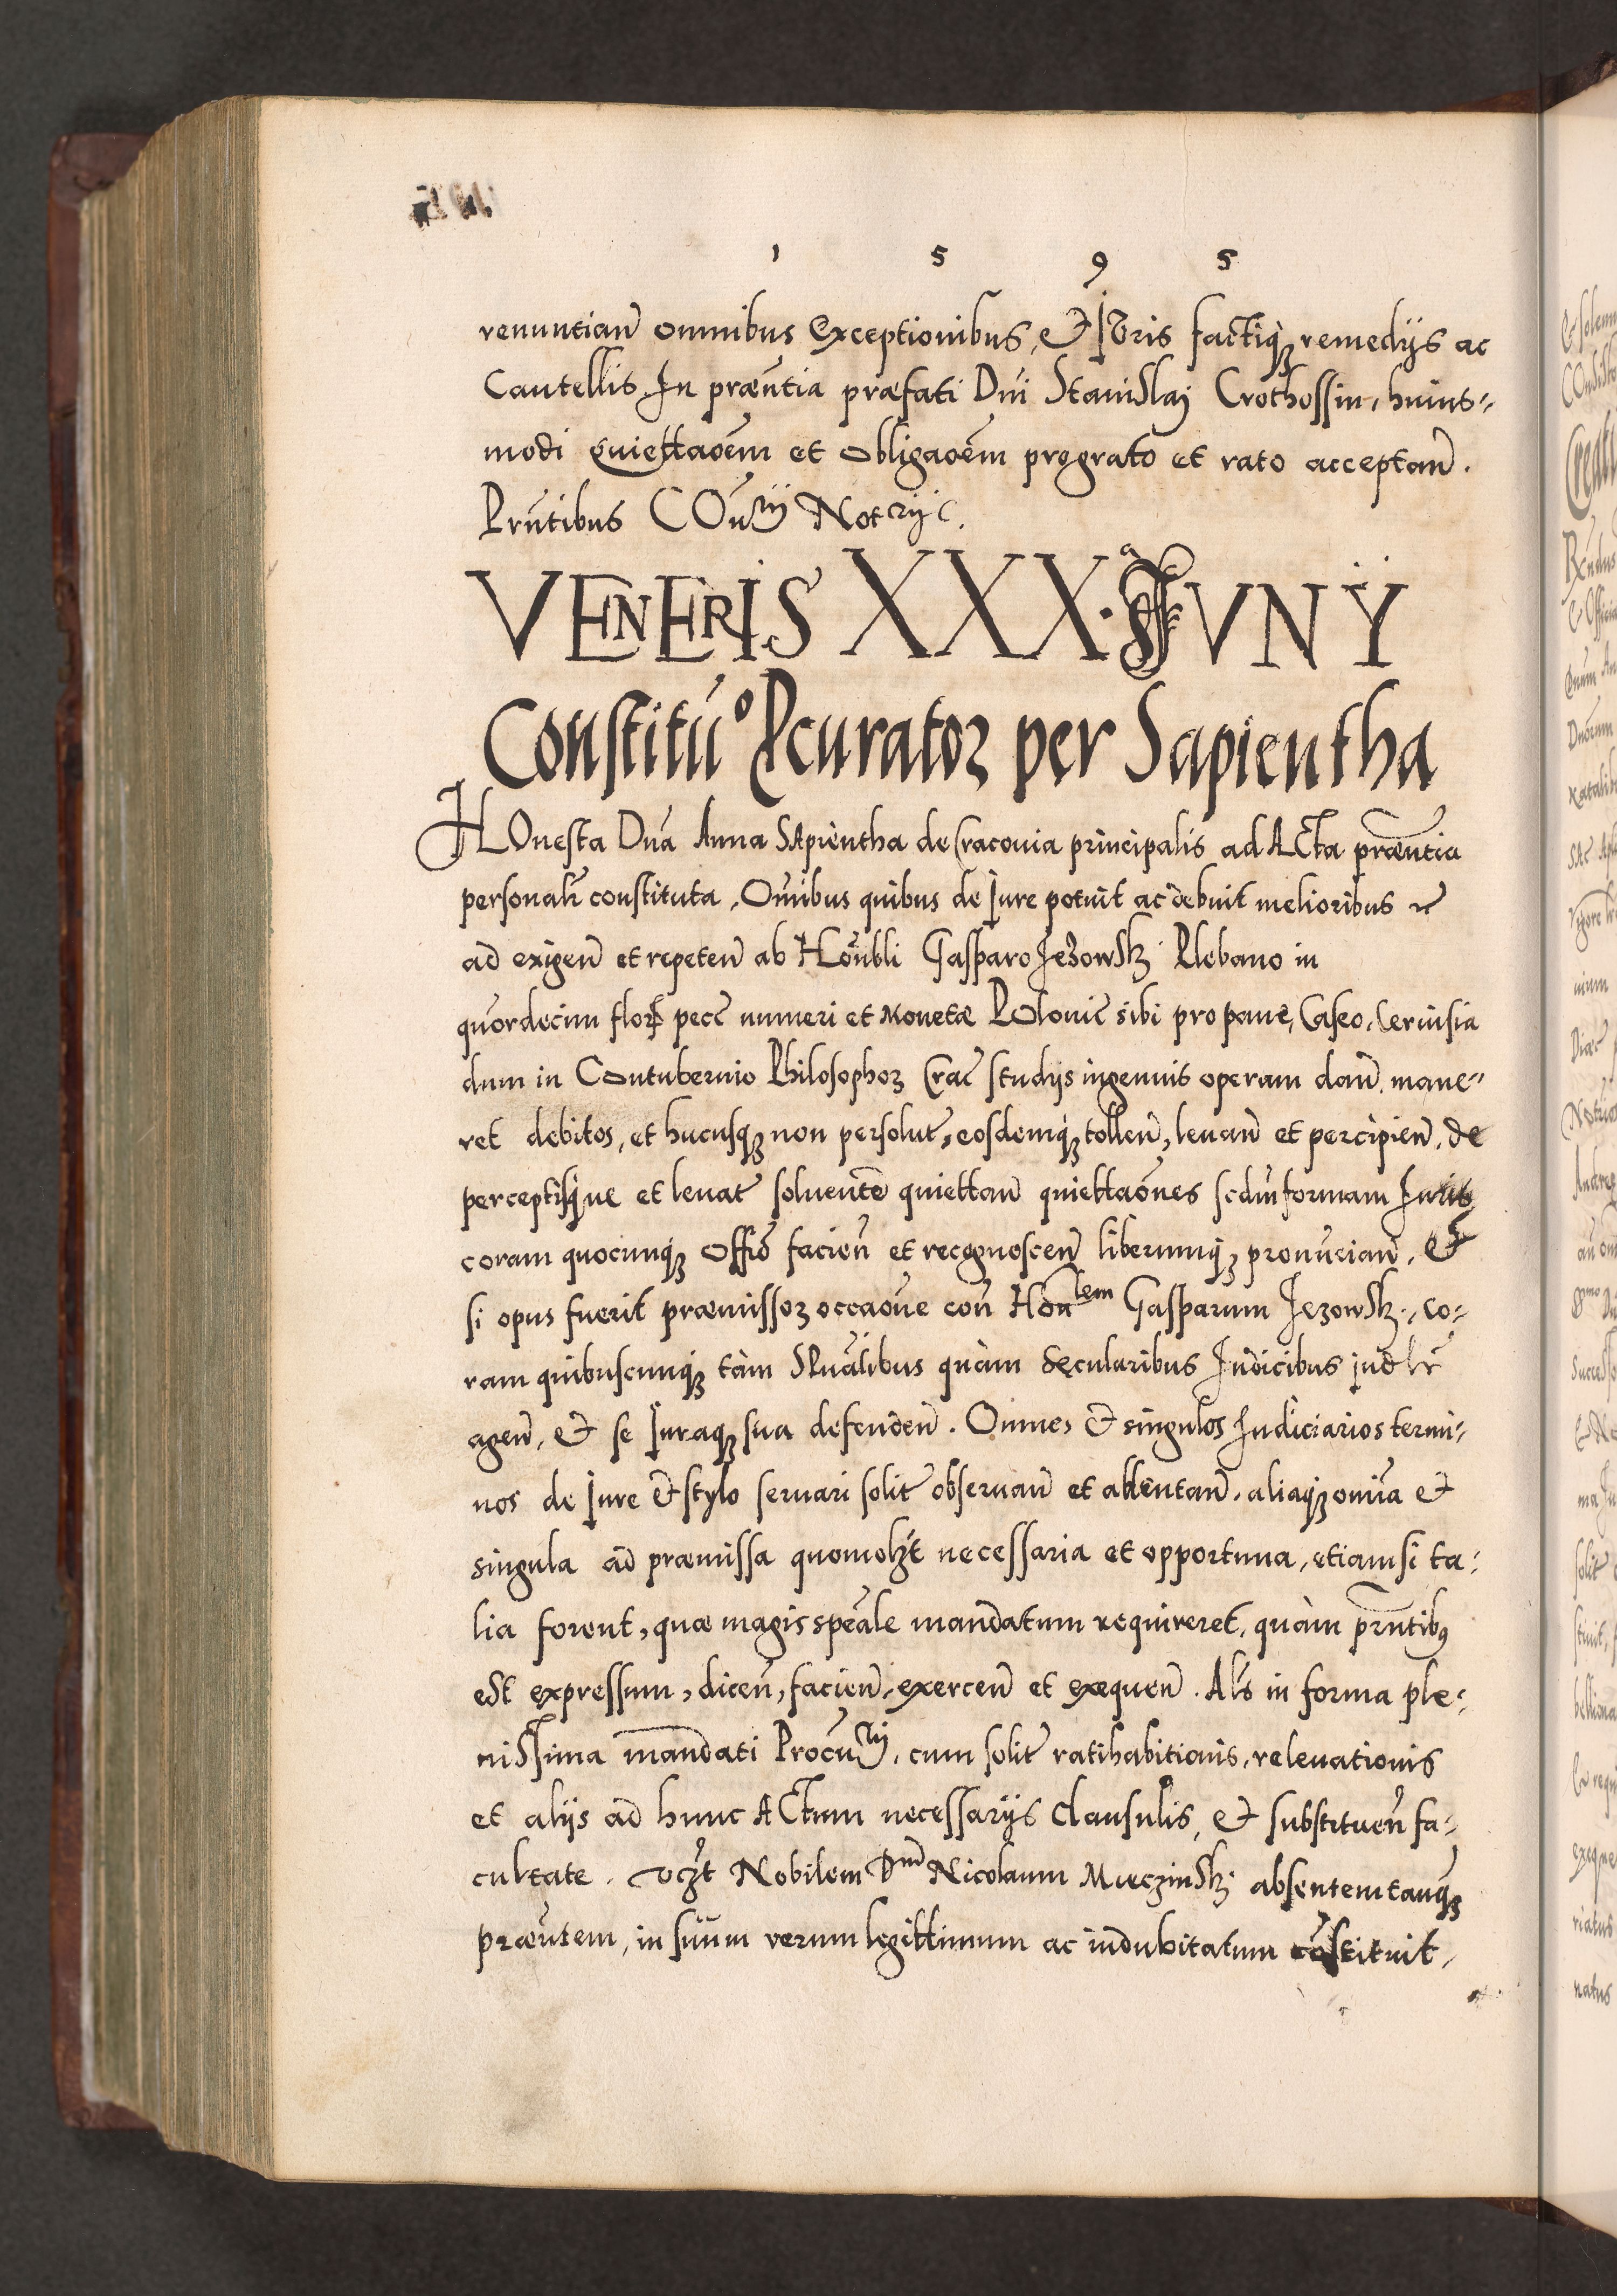 1 5 9 5
renuntiań omnibus Exceptionibus, et Iuris factiqꝫ remedijs ac
Cautellis In præntia præfati Dni Stanislaj Crothossin, huius-
modi quiettaoem et obligaoem pro grato et rato acceptań.
Prntibus COnrij Notrij c.
VENERIS XXX.a IVNY
Constitu° Pcuratoꝝ per Sapientha
HOnesta Dna Anna SApientha de Cracouia principalis ad ACta præntia
personalr constituta, Omibus quibus de Iure potuit ac debuit melioribus et
ad exigeń et repeteń ab Honbli Gasparo Iezowskj Plebano in
quordecim flor pecc numeri et Monetæ POlonic sibi pro pane, Caseo, Ceruisia
dum in Contubernio Philosophoꝝ Crac studijs ingenuis operam dań, mane-
ret debitos, et hucusqꝫ non persolut, eosdemqꝫ tolleń, leuań et percipień, de
perceptisque et leuat soluente quiettań quiettaones scdm formam Iuris
coram quocunqꝫ Offio facień et recognosceń liberumqꝫ pronunciań, Et
si opus fuerit præmissoꝝ occaone con Honlem Gasparum Iezowskj, co-
ram quibuscunqꝫ tàm SPualibus quàm Secularibus Iudicibus iudlr
ageń, et se Iuraqꝫ sua defendeń. Omnes et singulos Iudiciarios termi-
nos de Iure et stylo seruari solit obseruań et attentań, aliaqꝫ omia et
singula ad præmissa quomolꝫt necessaria et opportuna, etiamsi ta-
lia forent, quæ magis speale mandatum requireret, quàm prntibꝰ
est expressum, diceń, facień, exerceń et exequeń. Als in forma ple-
nissima mandati Procurij, cum solit ratihabitionis, releuationis
et alijs ad hunc ACtum necessarijs clausulis, et substitueń fa-
cultate. vꝫt Nobilem Dnm Nicolaum Mieczinskj absentem tanqꝫ
præntem, in suum verum legittimum ac indubitatum constituit,